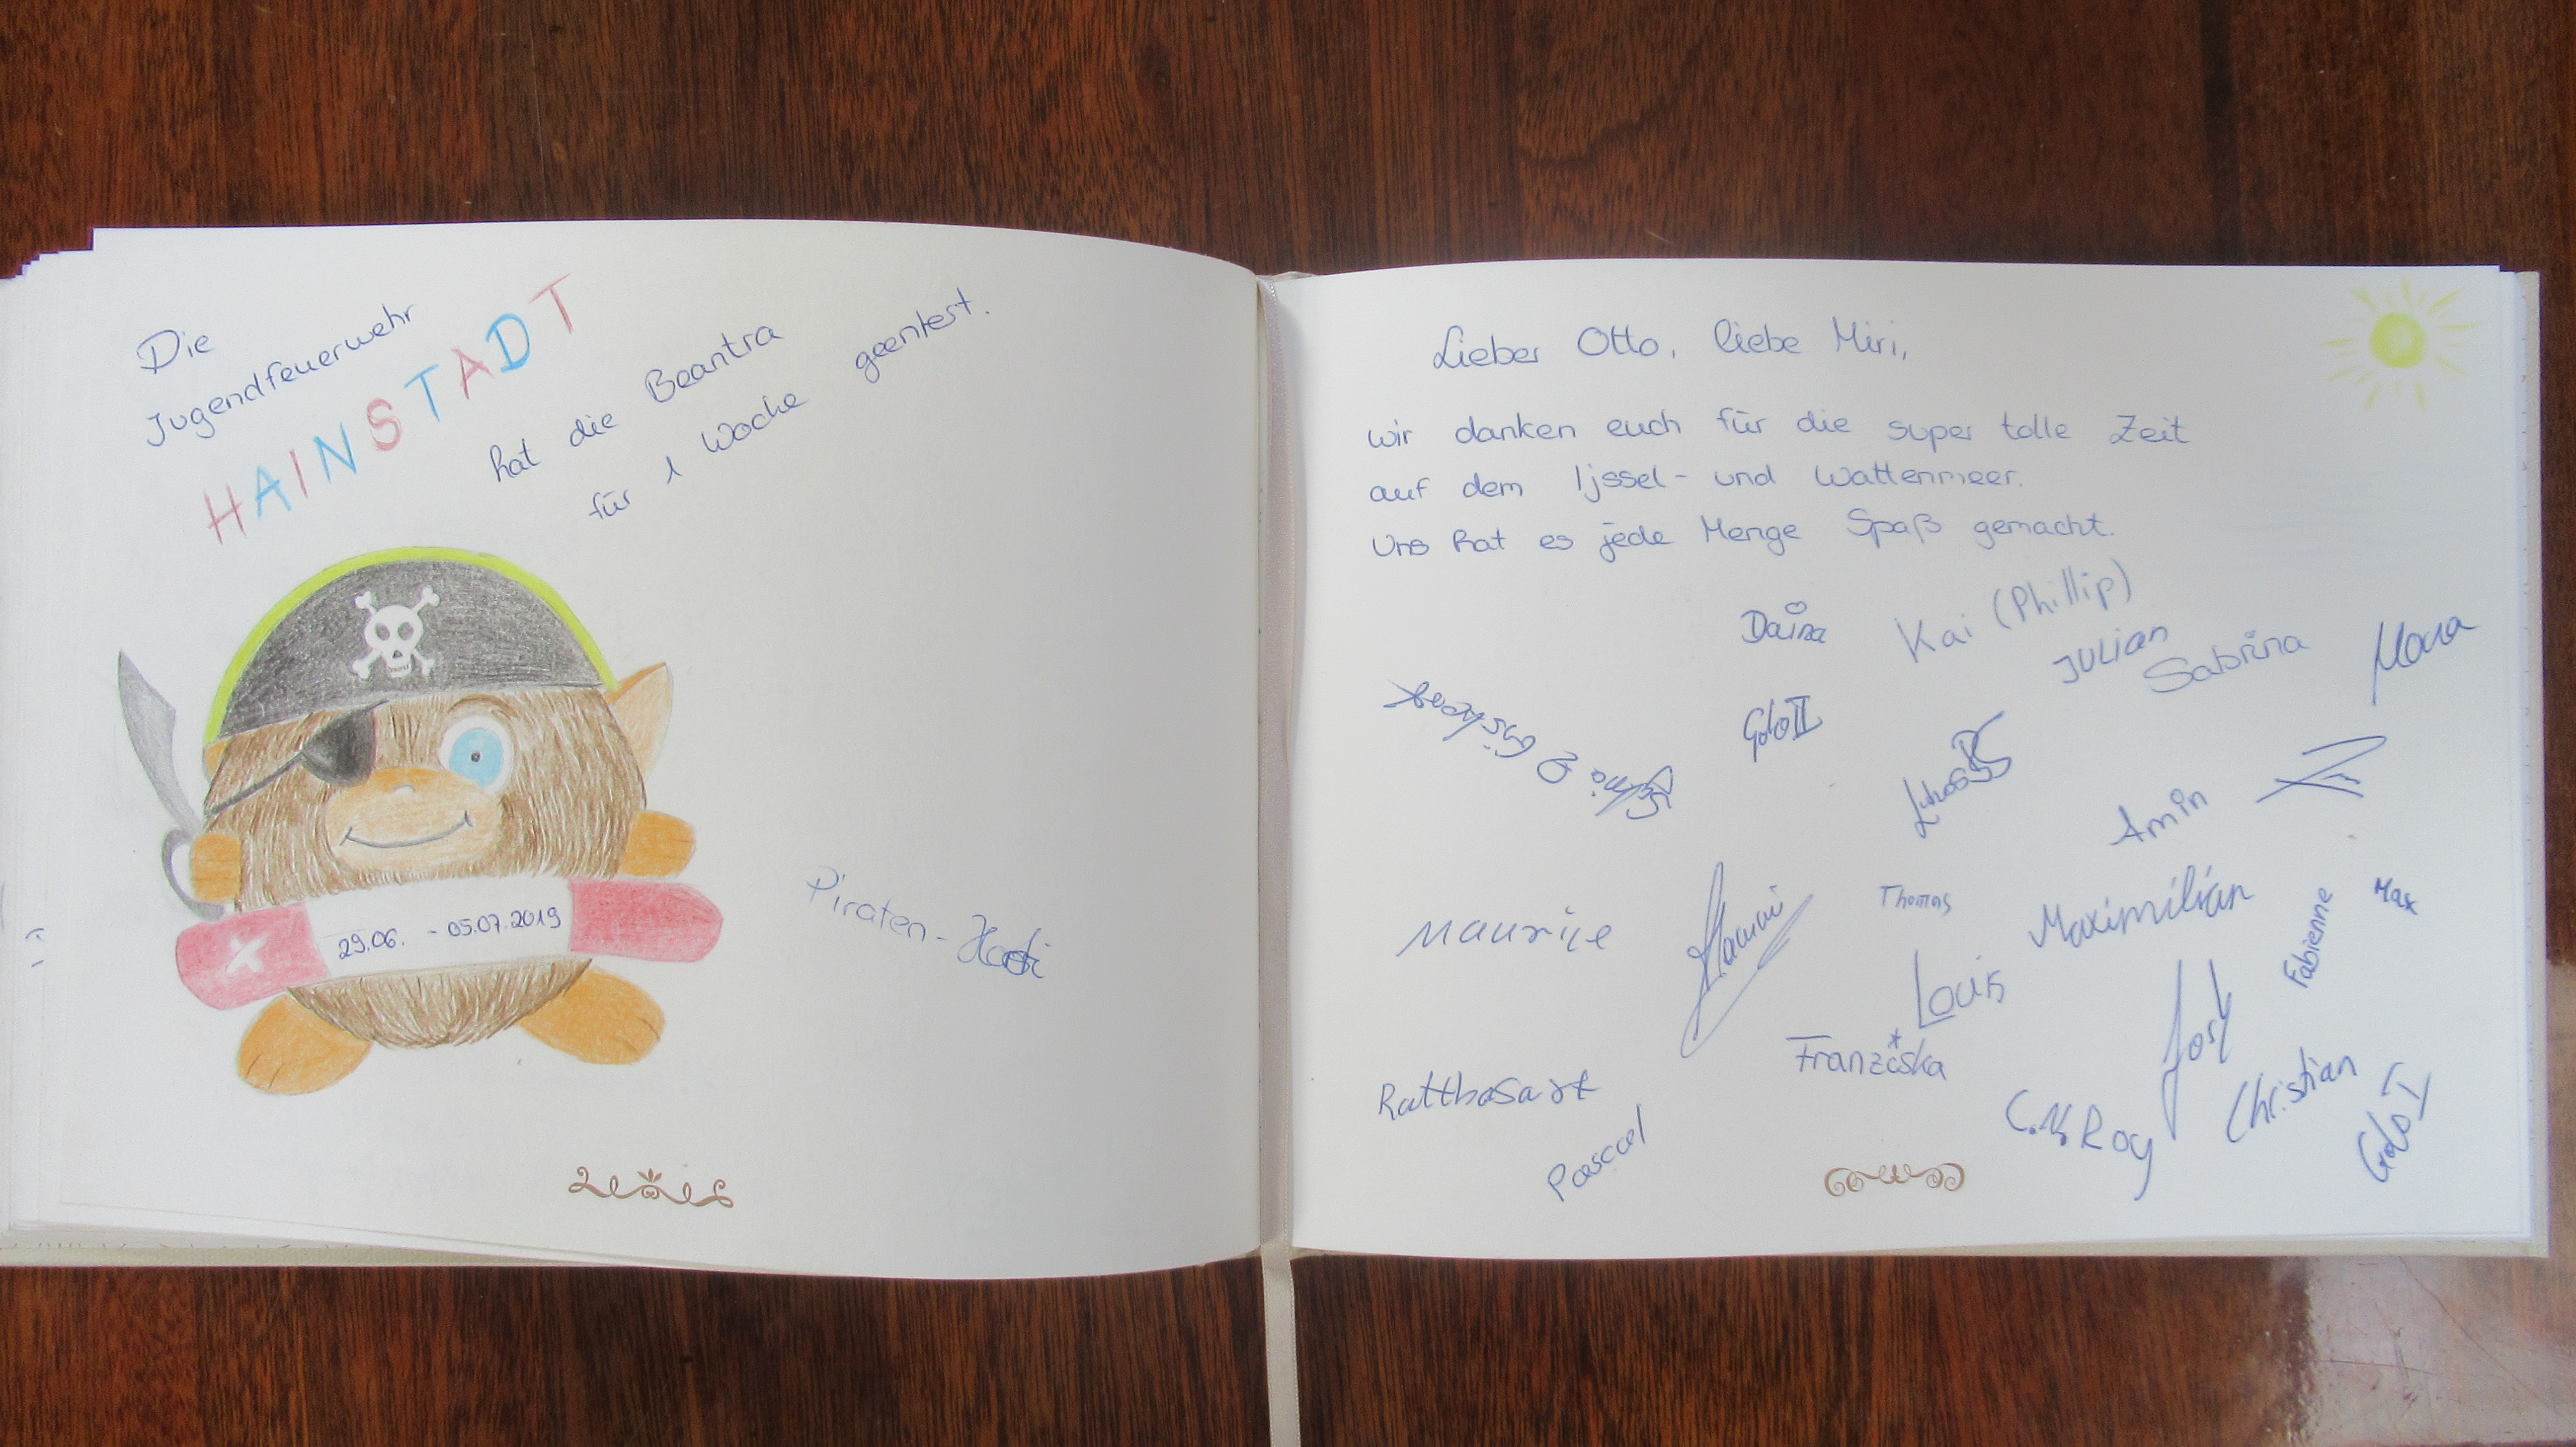 Die
Jugendfeuerwehr
HAINSTADT
hat die Beantra
für 1 Woche geentert.
29.06. - 05.07.2019
Piraten-
Lieber Otto, liebe Miri,
wir danken euch für die super tolle Zeit
auf dem Ijssel- und Wattenmeer.
Uns hat es jede Menge Spaß gemacht.
Daina
Kai (Phillip)
JULian
Sabrina
Mara
Golo II
Lukas
Amin
Maurice
Thomas
Maximilian
Max
Fabienne
Louis
Franziska
Josy
Christian
Roy
Golo I
Pascal